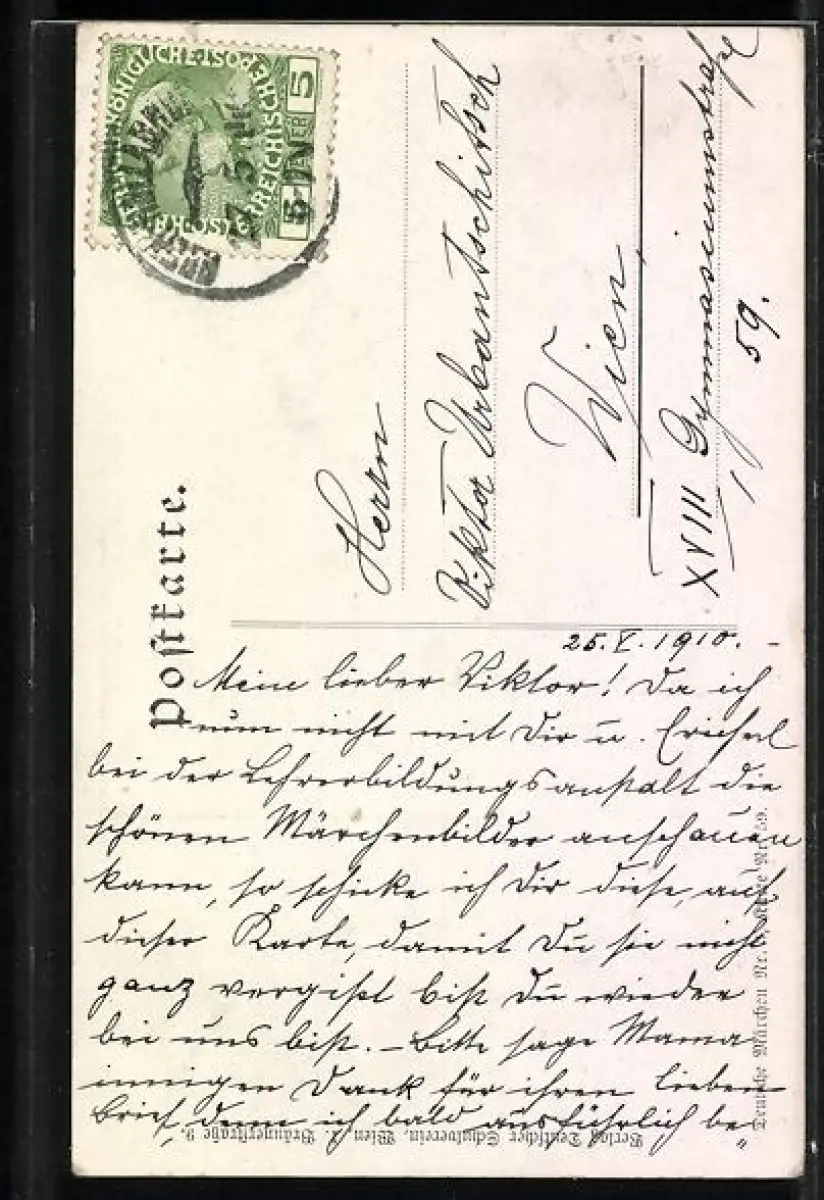 Postkarte.
KAIS. KÖNIGLICHE ÖSTERREICHISCHE POST
5 HELLER 5
Herrn
Viktor Urbantschitsch
Wien,
XVIII Gymnasiumstraße
59.
25. V. 1910.
Mein lieber Viktor! Da ich
nun nicht mit Dir u.
bei der Lehrerbildungsanstalt die
schönen Märchenbilder anschauen
kann, so schicke ich Dir diese, auf
dieser Karte, damit Du sie nicht
ganz vergißt bist Du wieder
bei uns bist. – Bitte sage Mama
innigen Dank für ihren lieben
Brief, denn ich bald ausführlich be
Deutsche Märchen Nr. Karte Nr. 59.
Verlag Deutscher Schulverein, Wien, I. Bräunerstraße 9.